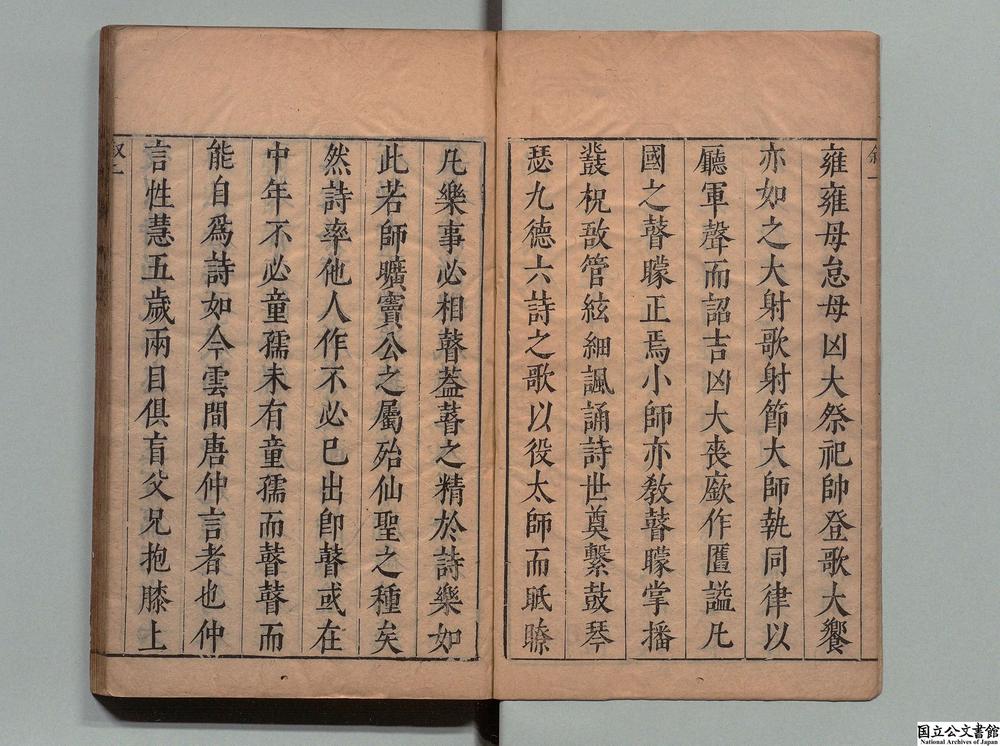 叙一
雍雍毋怠毋凶大祭祀帥登歌大饗
亦如之大射歌射節大師執同律以
廳軍聲而詔吉凶大喪廞作匶謚凡
國之瞽矇正焉小師亦教瞽矇掌播
鼗柷敔管絃細諷誦詩世奠繫鼓琴
瑟九德六詩之歌以役太師而眂瞭
凡樂事必相瞽蓋瞽之精於詩樂如
此若師曠竇公之屬殆仙聖之種矣
然詩率他人作不必巳出卽瞽或在
中年不必童孺未有童孺而瞽瞽而
能自爲詩如今雲間唐仲言者也仲
言性慧五歲兩目俱盲父兄抱膝上
国立公文書館
National Archives of Japan